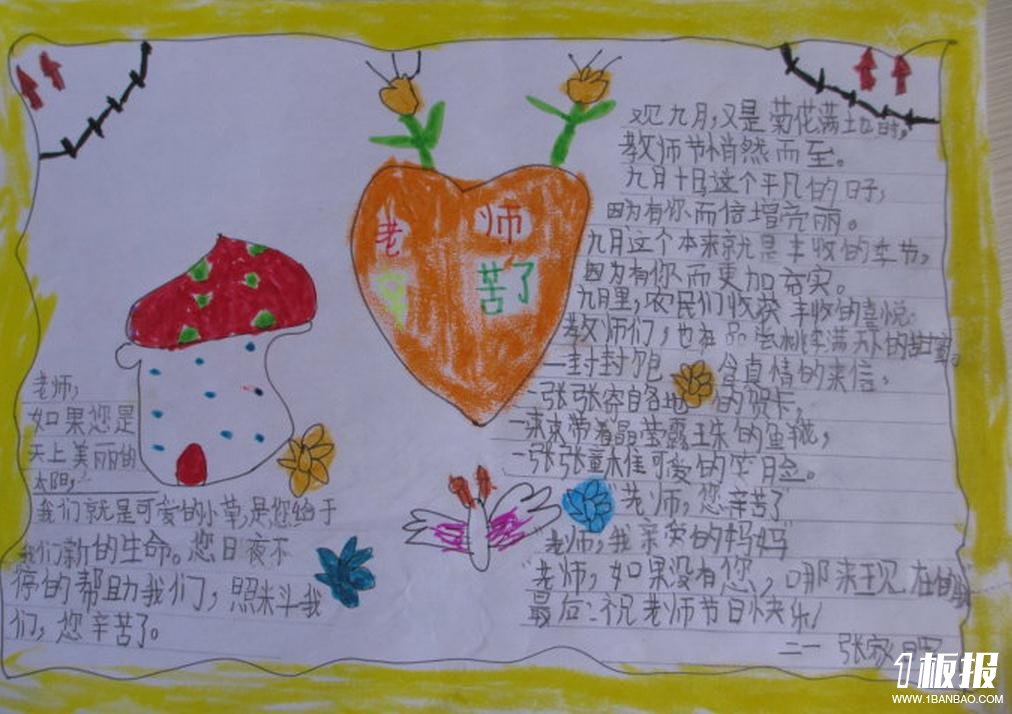 老师
辛苦了
老师，
如果您是
天上美丽的
太阳，
我们就是可爱的小草，是您给于
我们新的生命。您日夜不
停的帮助我们，照料我
们，您辛苦了。
观九月，又是菊花满地时，
教师节悄然而至。
九月十日这个平凡的日子，
因为有你而倍增亮丽。
九月这个本来就是丰收的季节，
因为有你而更加夯实。
九月里，农民们收获丰收的喜悦：
教师们，也在品尝桃李满天下的甜蜜。
一封封饱含真情的来信，
一张张寄自各地的贺卡，
一束束带着晶莹露珠的鱼栽，
一张张童木隹可爱的笑脸。
"老师，您辛苦了"
"老师，我亲爱的妈妈"
"老师，如果没有您，哪来现在的我"
最后：祝老师节日快乐！
二一 张家
1板报
WWW.1BANBAO.COM